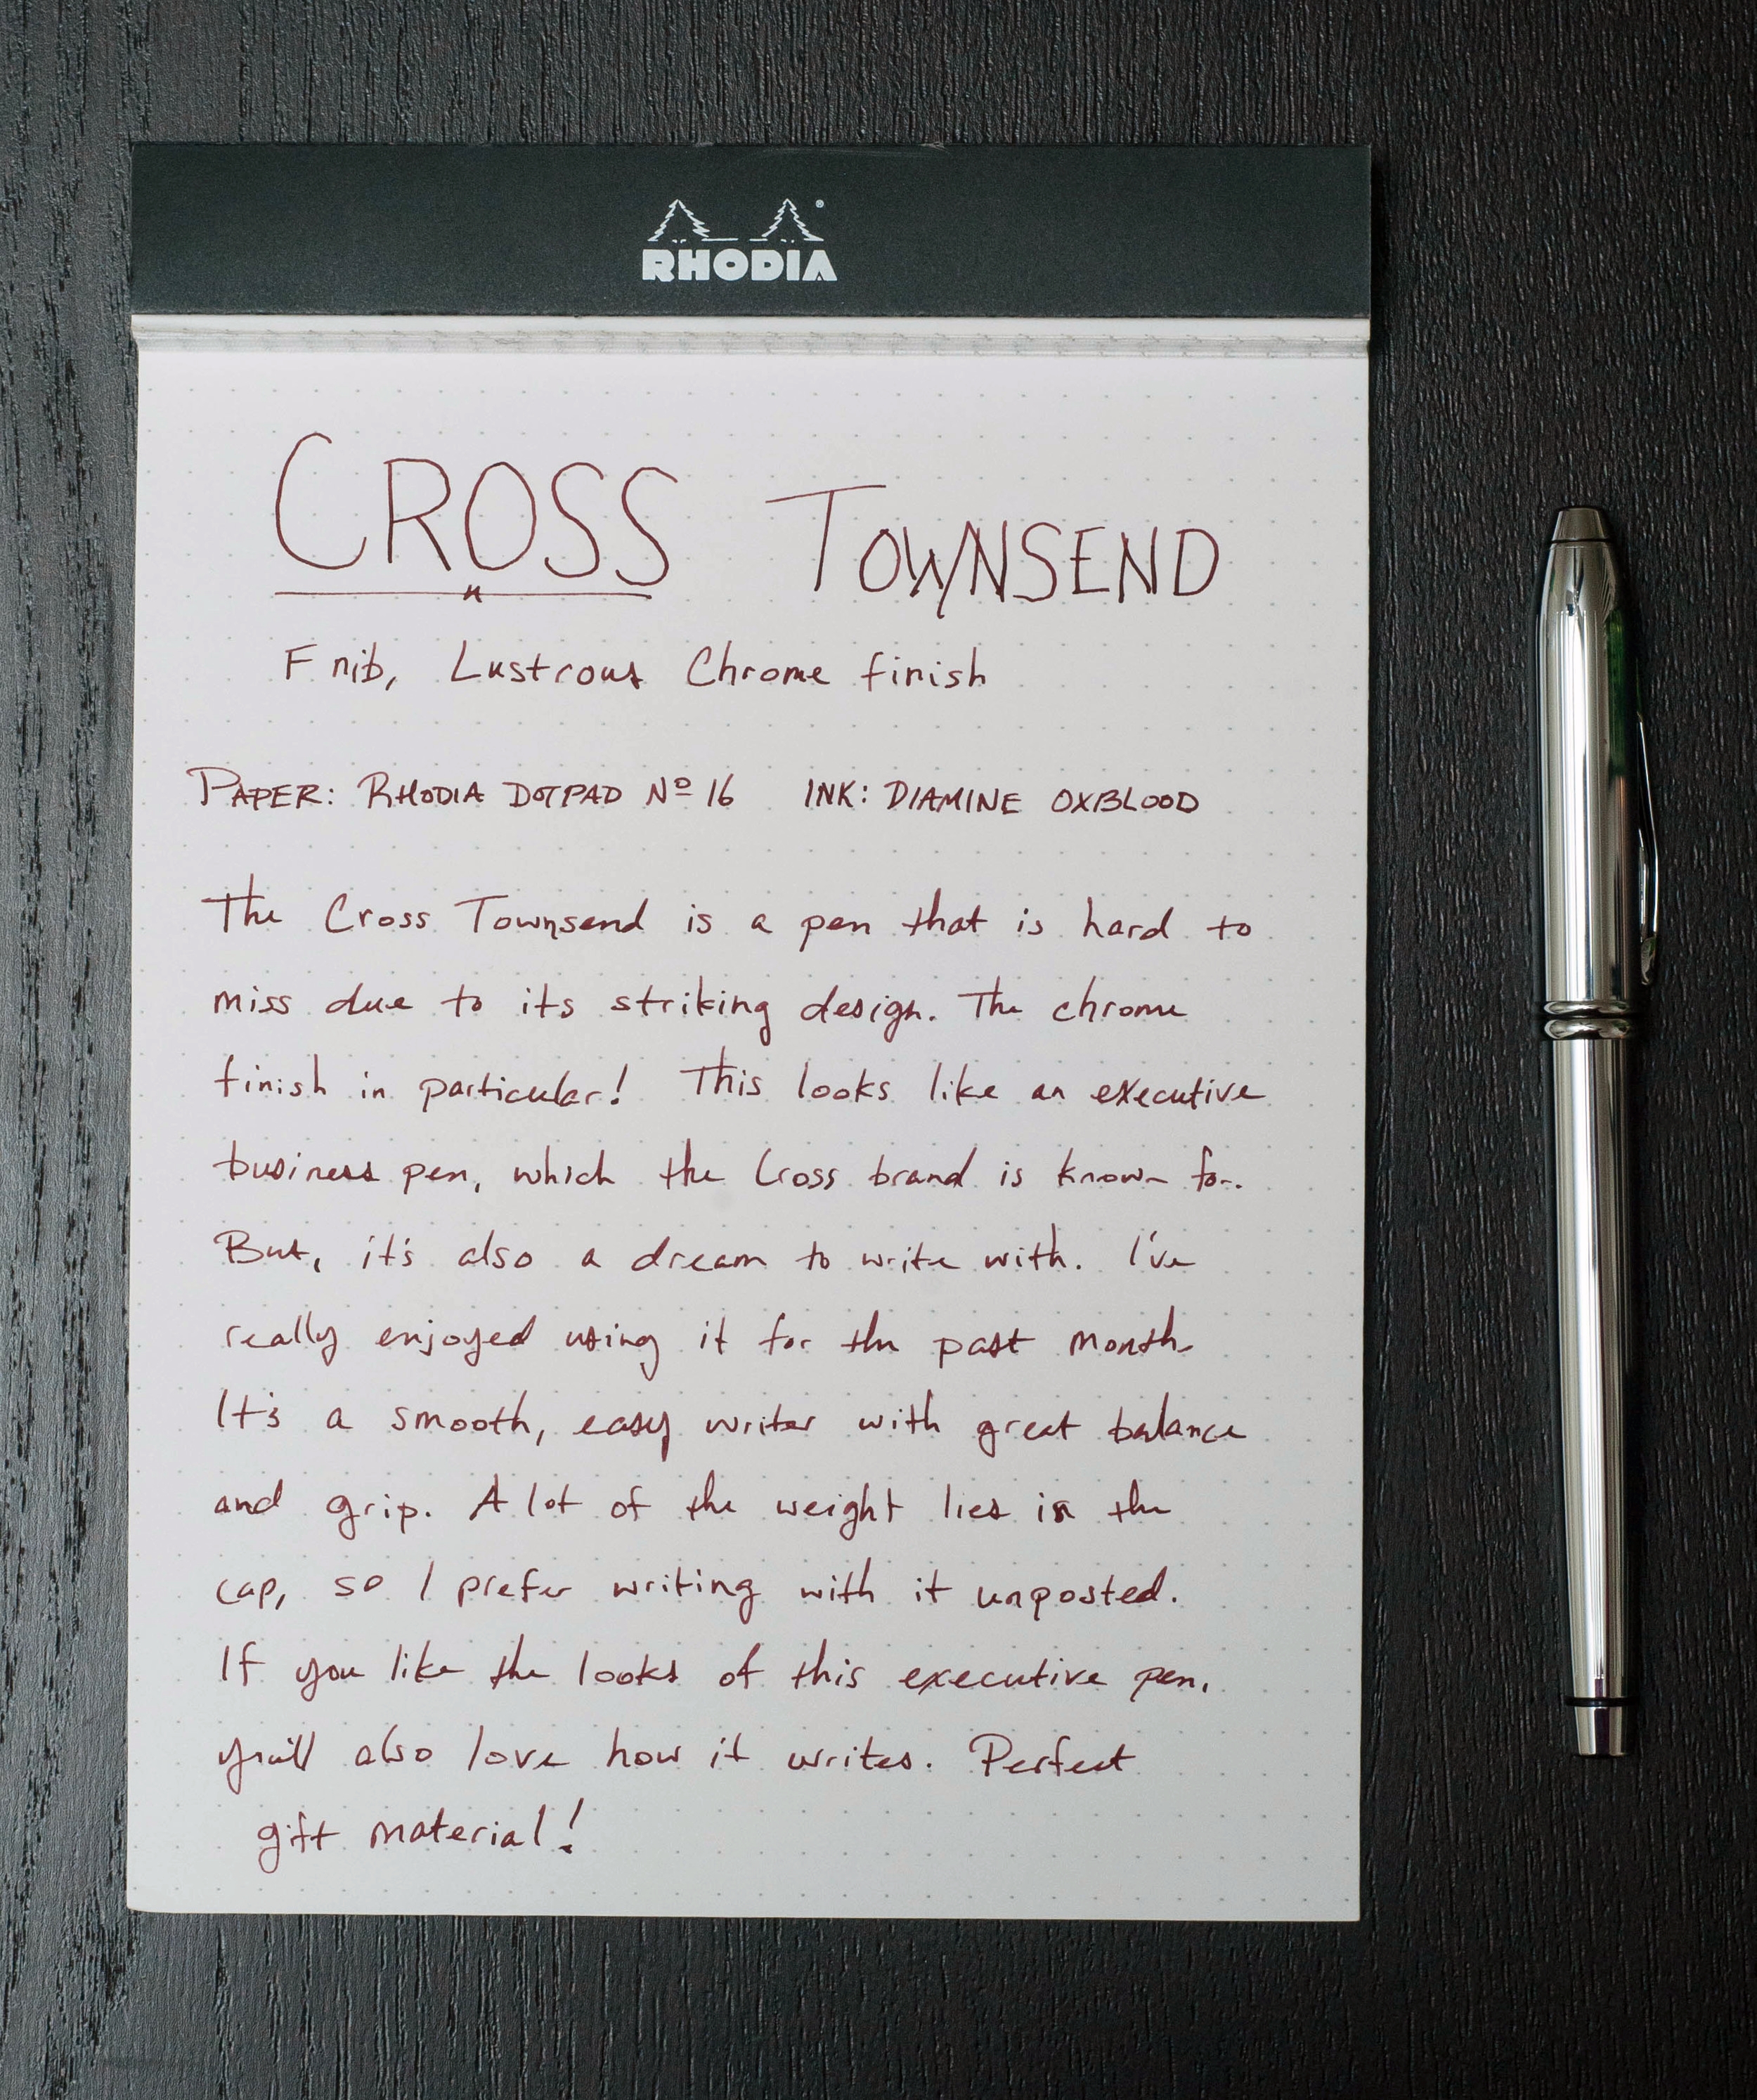 RHODIA
CROSS TOWNSEND
F nib, Lustrous Chrome finish
PAPER: RHODIA DOTPAD Nº 16 INK: DIAMINE OXBLOOD
The Cross Townsend is a pen that is hard to
miss due to its striking design. The chrome
finish in particular! This looks like an executive
business pen, which the Cross brand is known for.
But, it's also a dream to write with. I've
really enjoyed using it for the past month.
It's a smooth, easy writer with great balance
and grip. A lot of the weight lies in the
cap, so I prefer writing with it unposted.
If you like the looks of this executive pen,
you'll also love how it writes. Perfect
gift material!